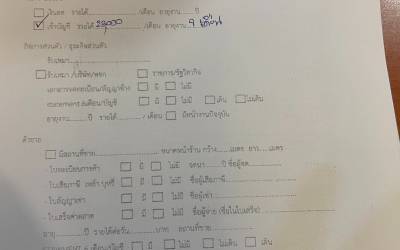 ☐ เงินสด รายได้............/เดือน อายุงาน......ปี
☑ เข้าบัญชี รายได้ 23,000 /เดือน อายุงาน 9 เดือน
กิจการส่วนตัว / ธุรกิจส่วนตัว
รับเหมา
☐ รับเหมา /บริษัท/หจก ☐ ราชการ/รัฐวิสาหกิจ
เอกสารจดทะเบียน/สัญญาจ้าง ☐ มี ☐ ไม่มี
statement 6เดือน/บัญชี ☐ มี ☐ ไม่มี ☐ เดิน ☐ ไม่เดิน
อายุงาน......ปี รายได้............/เดือน ☐ มีหน้างานปัจจุบัน
ค้าขาย
☐ มีสถานที่ขาย............ขนาดหน้าร้าน กว้าง......เมตร ยาว......เมตร
- ใบทะเบียนการค้า ☐ มี ☐ ไม่มี จดมา......ปี ชื่อผู้จด
- ใบเสียภาษี เหล้า บุหรี่ ☐ มี ☐ ไม่มี ชื่อผู้เสียภาษี
- ใบสัญญาเช่า ☐ มี ☐ ไม่มี ชื่อผู้เช่า
- ใบเสร็จค่าตลาด ☐ มี ☐ ไม่มี ชื่อผู้จ่าย (ชื่อในใบเสร็จ)
อายุ......ปี รายได้ต่อวัน............บาท สถานที่ขาย
6 เดือน/บัญชี ☐ มี ☐ ไม่มี ☐ เดิน